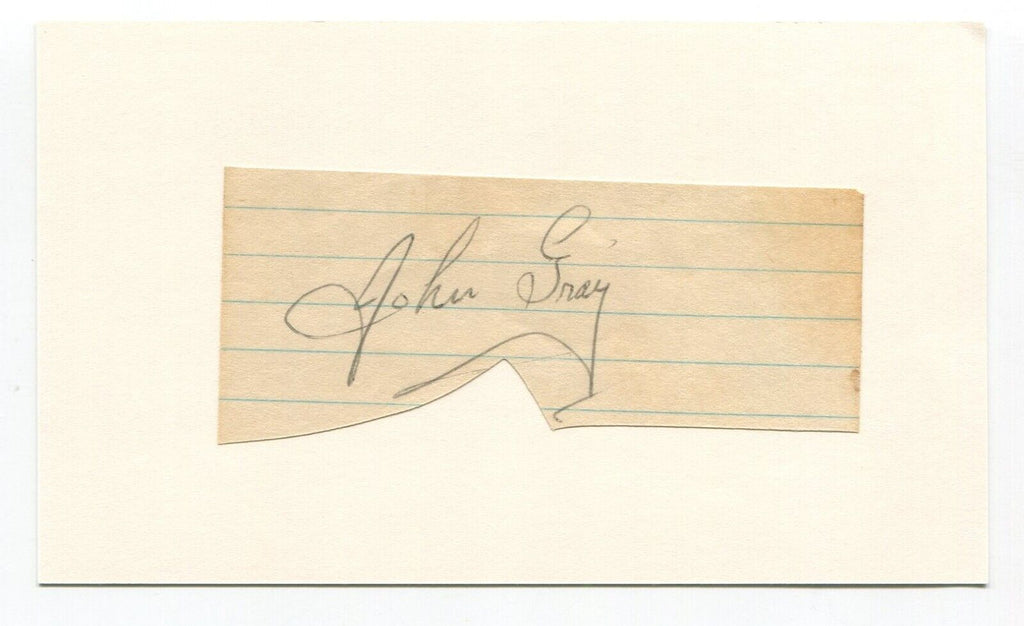 John Gray